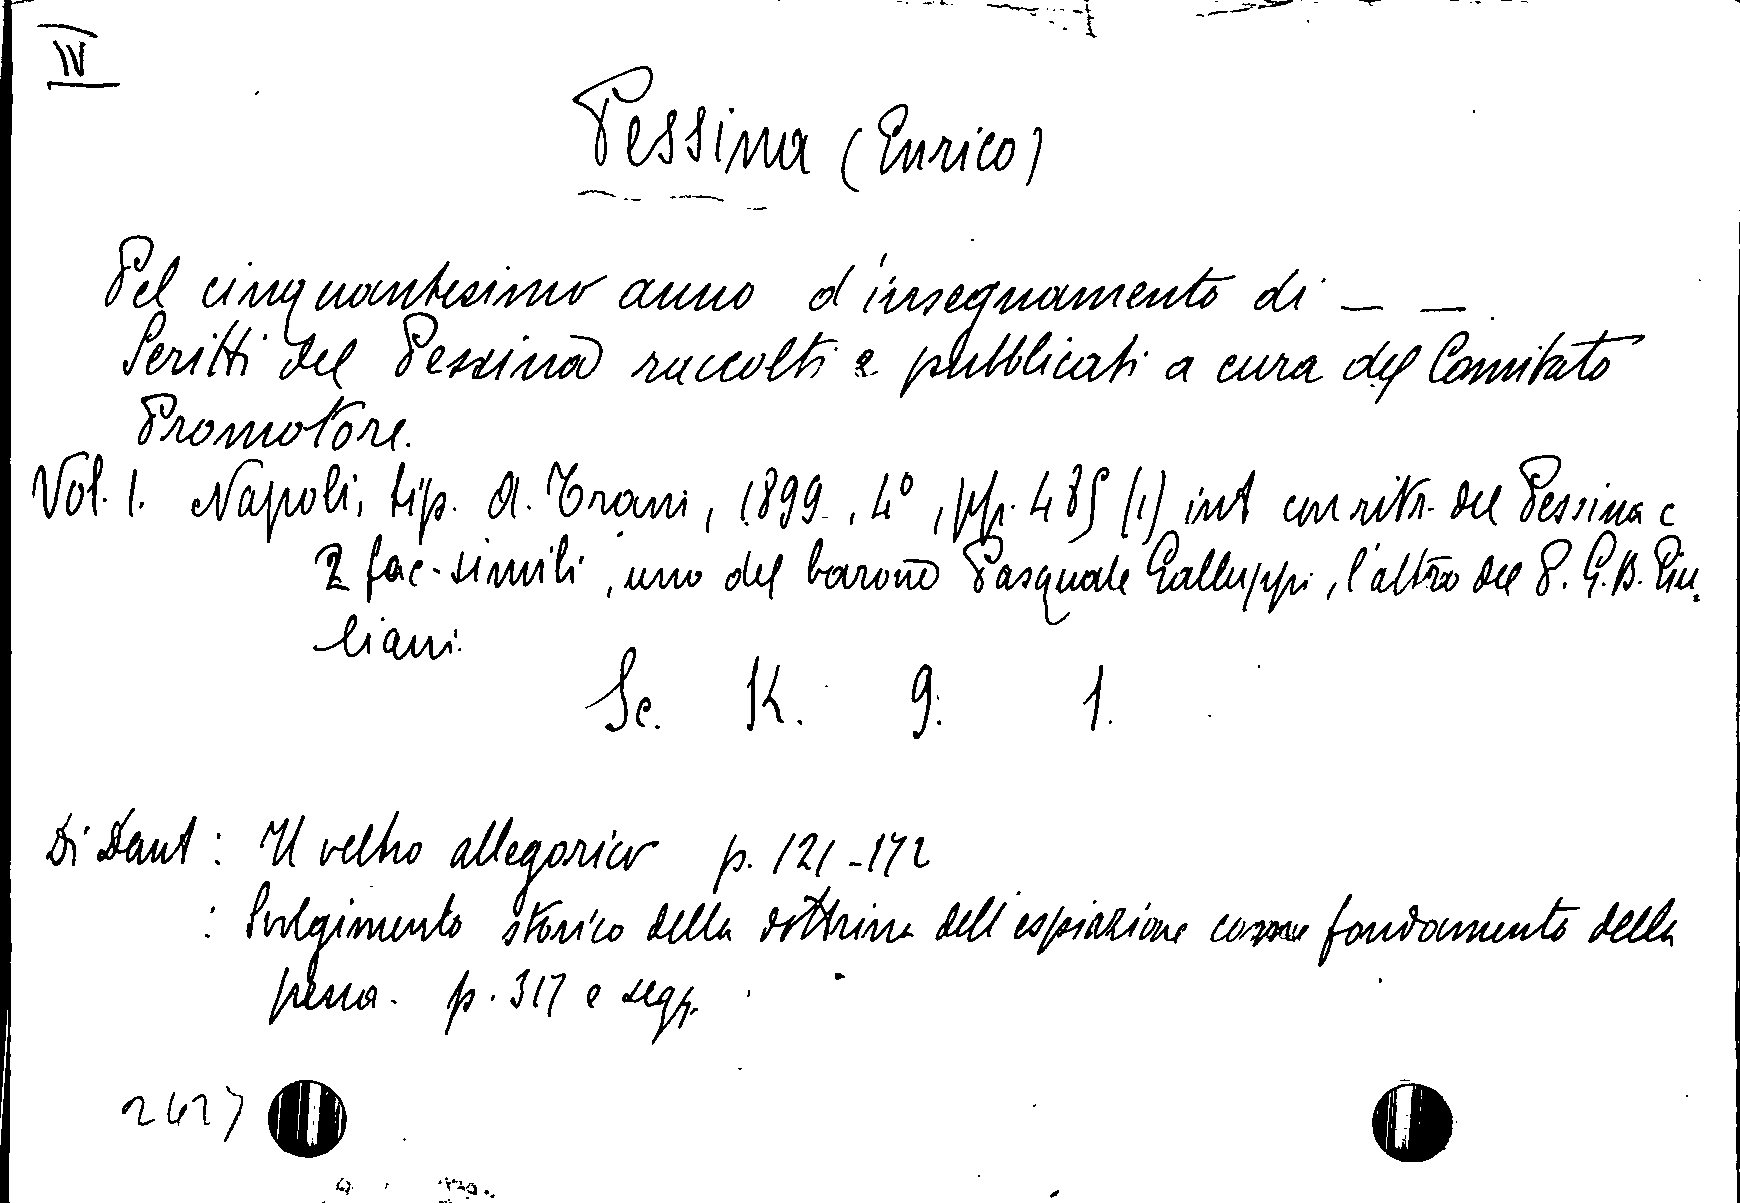 IV
Pessina (Enrico)
Pel cinquantesimo anno d'insegnamento di _ _
Scritti del Pessina raccolti e pubblicati a cura del Comitato
Promotore.
Vol. 1. Napoli, tip. A. Trani, 1899., 4°, pp. 485 (1) int con ritr. del Pessina e
2 fac-simili, uno del barone Pasquale Galluppi, l'altro del P. G. B. Giu-
liani.
Sc. K. 9. 1.
Di Dant : Il veltro allegorico p. 121-172
: Svolgimento storico della dottrina dell'espiazione come fondamento della
pena. p. 317 e segg.
2627